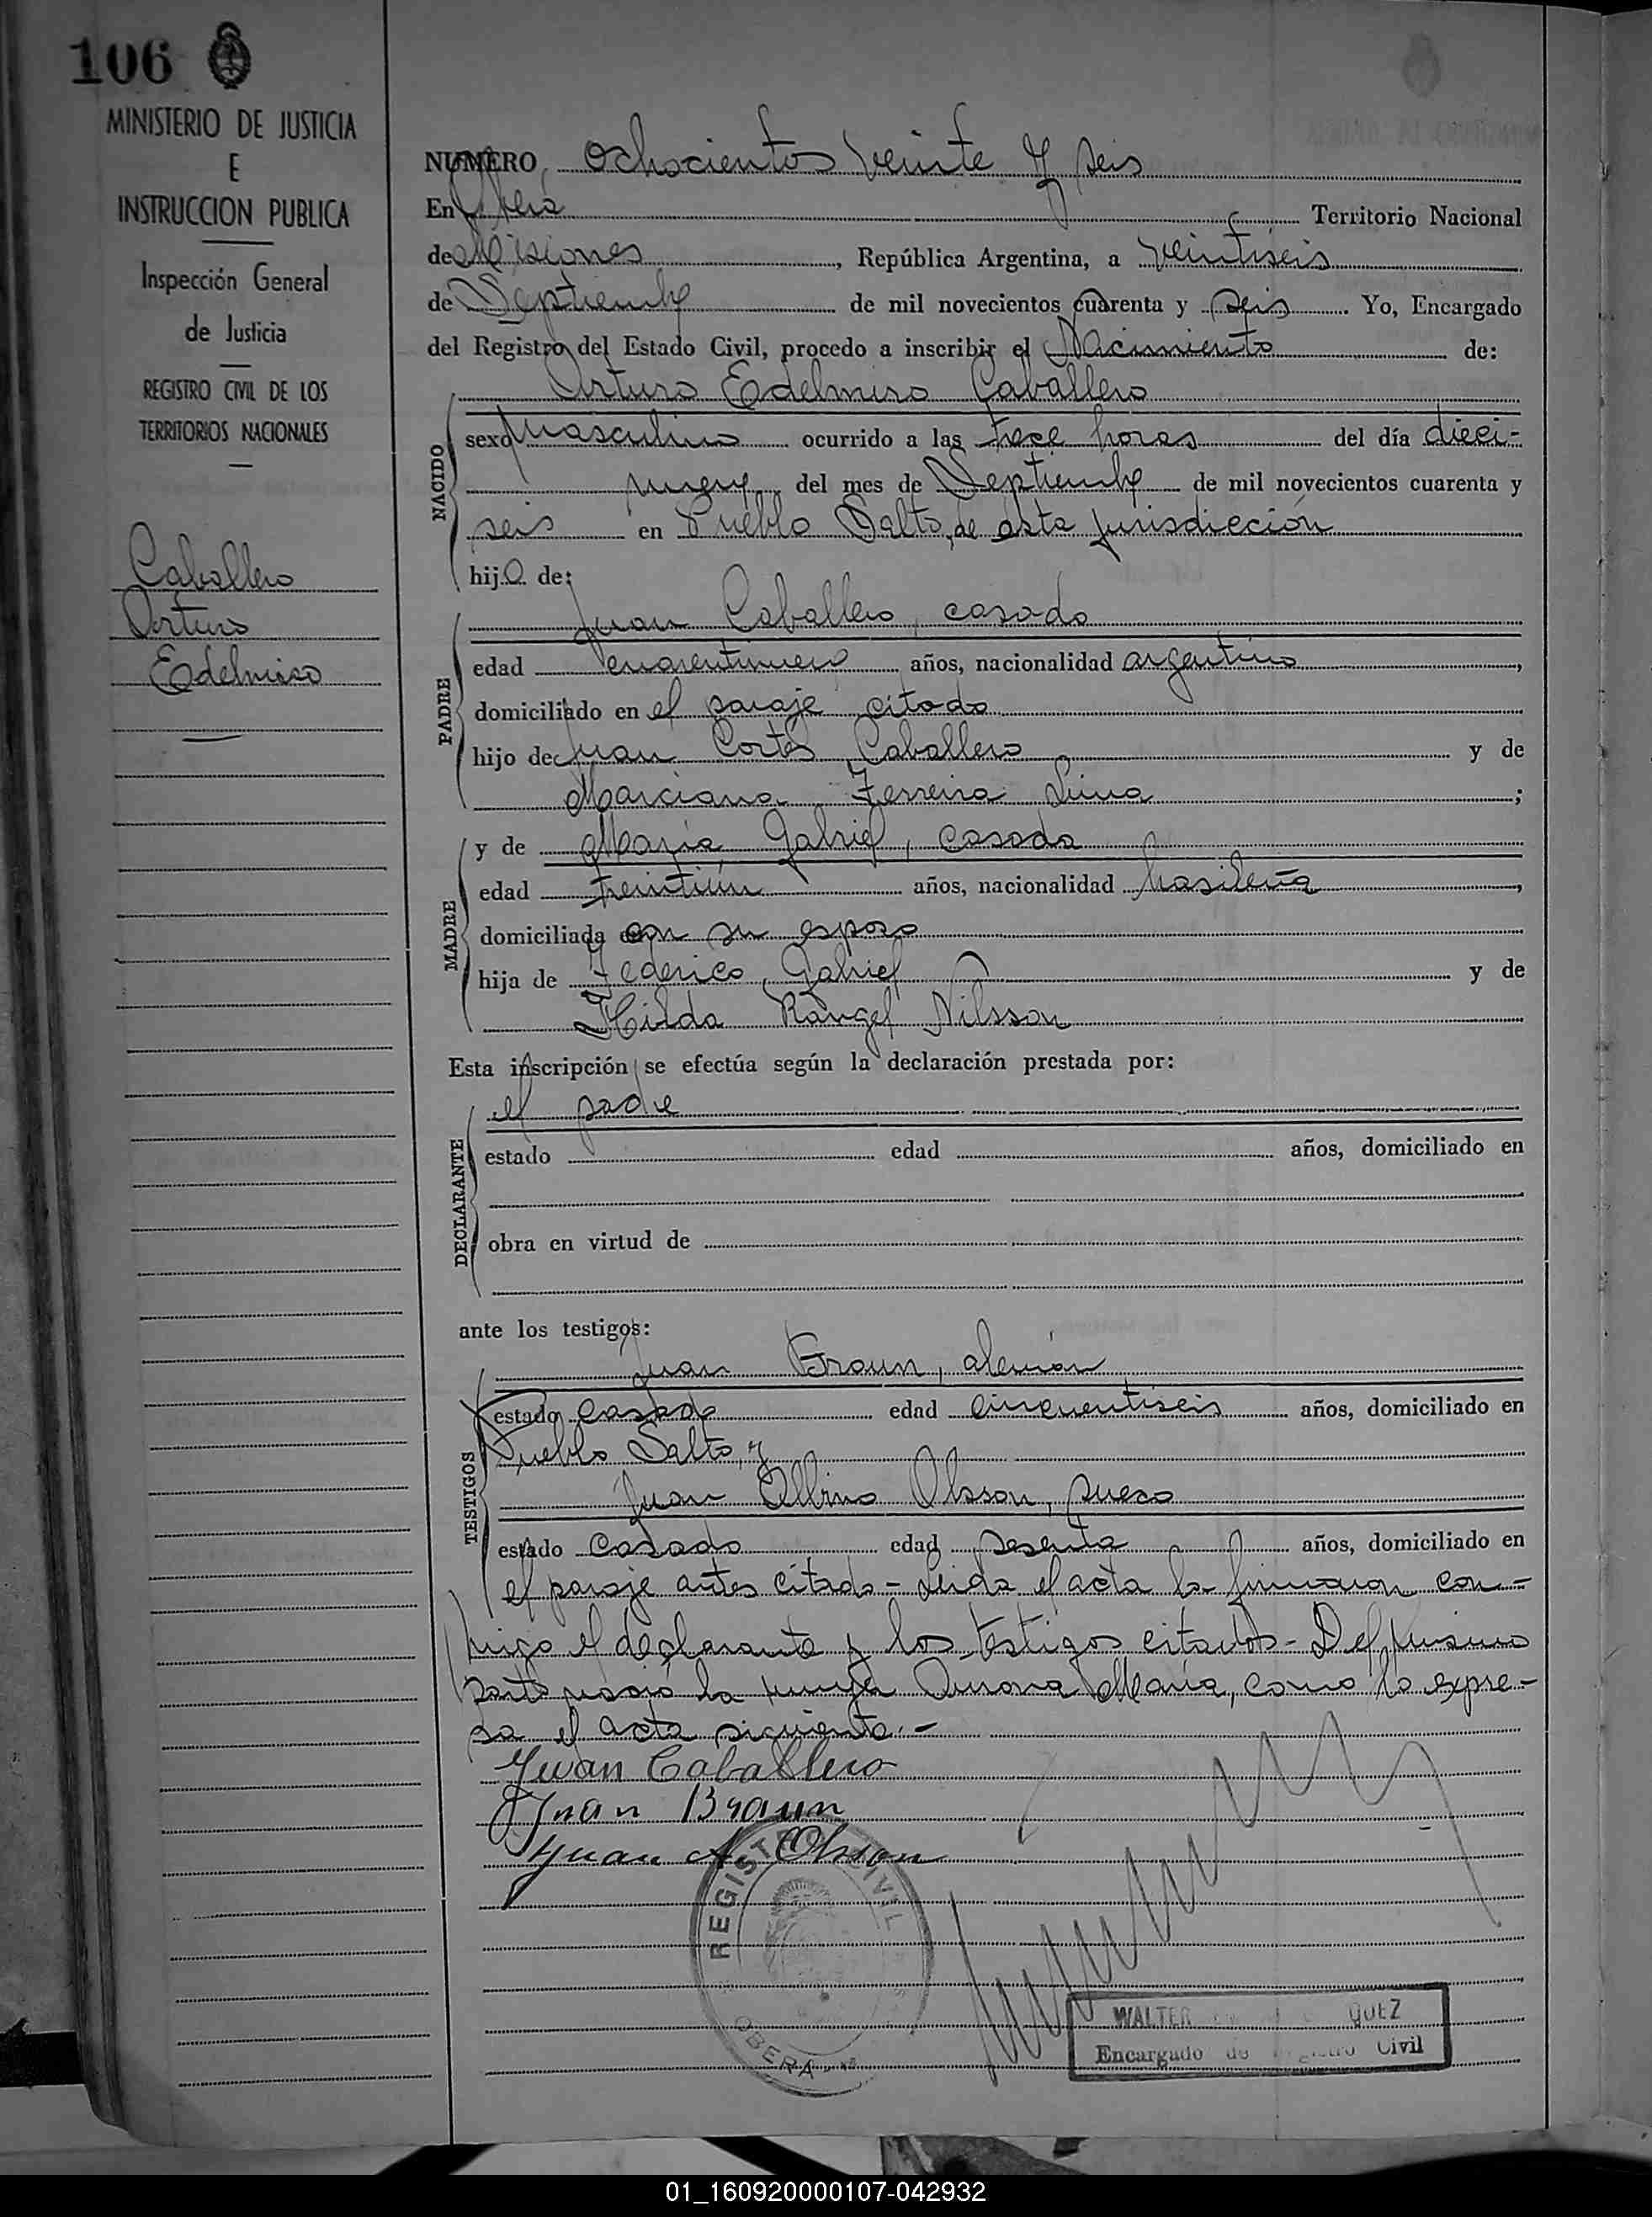 106
MINISTERIO DE JUSTICIA
E
INSTRUCCION PUBLICA
Inspección General
de Justicia
REGISTRO CIVIL DE LOS
TERRITORIOS NACIONALES
Caballero
Arturo
Edelmiro
NUMERO ochocientos veinte y seis
En Oberá Territorio Nacional
de Misiones, República Argentina, a veintiseis
de Septiembre de mil novecientos cuarenta y seis. Yo, Encargado
del Registro del Estado Civil, procedo a inscribir el Nacimiento de:
Arturo Edelmiro Caballero
NACIDO
sexo Masculino ocurrido a las trece horas del día dieci-
nueve del mes de Septiembre de mil novecientos cuarenta y
seis en Pueblo Salto, de esta jurisdicción
hijo de:
Juan Caballero, casado
PADRE
edad años, nacionalidad argentino,
domiciliado en el paraje citado
hijo de Juan Cortés Caballero y de
Marciana Ferreira Lima;
MADRE
y de María Gabriel, casada
edad treintiún años, nacionalidad brasileña,
domiciliada con su esposo
hija de Federico Gabriel y de
Hilda Rangel Nilsson
Esta inscripción se efectúa según la declaración prestada por:
el padre
DECLARANTE
estado edad años, domiciliado en
obra en virtud de
ante los testigos:
Juan Braun, alemán
TESTIGOS
estado casado edad cincuentiseis años, domiciliado en
Pueblo Salto, y
Juan Albino Olsson, sueco
estado casado edad sesenta años, domiciliado en
el paraje antes citado - Leida el acta la firmaron con-
migo el declarante y los testigos citados - Del mismo
parto nació la mujer María, como lo expre-
sa el acta siguiente. -
Juan Caballero
Juan Braun
Juan A. Olsson
REGISTRO CIVIL
OBERA
WALTER QUEZ
Encargado de Registro Civil
01_160920000107-042932